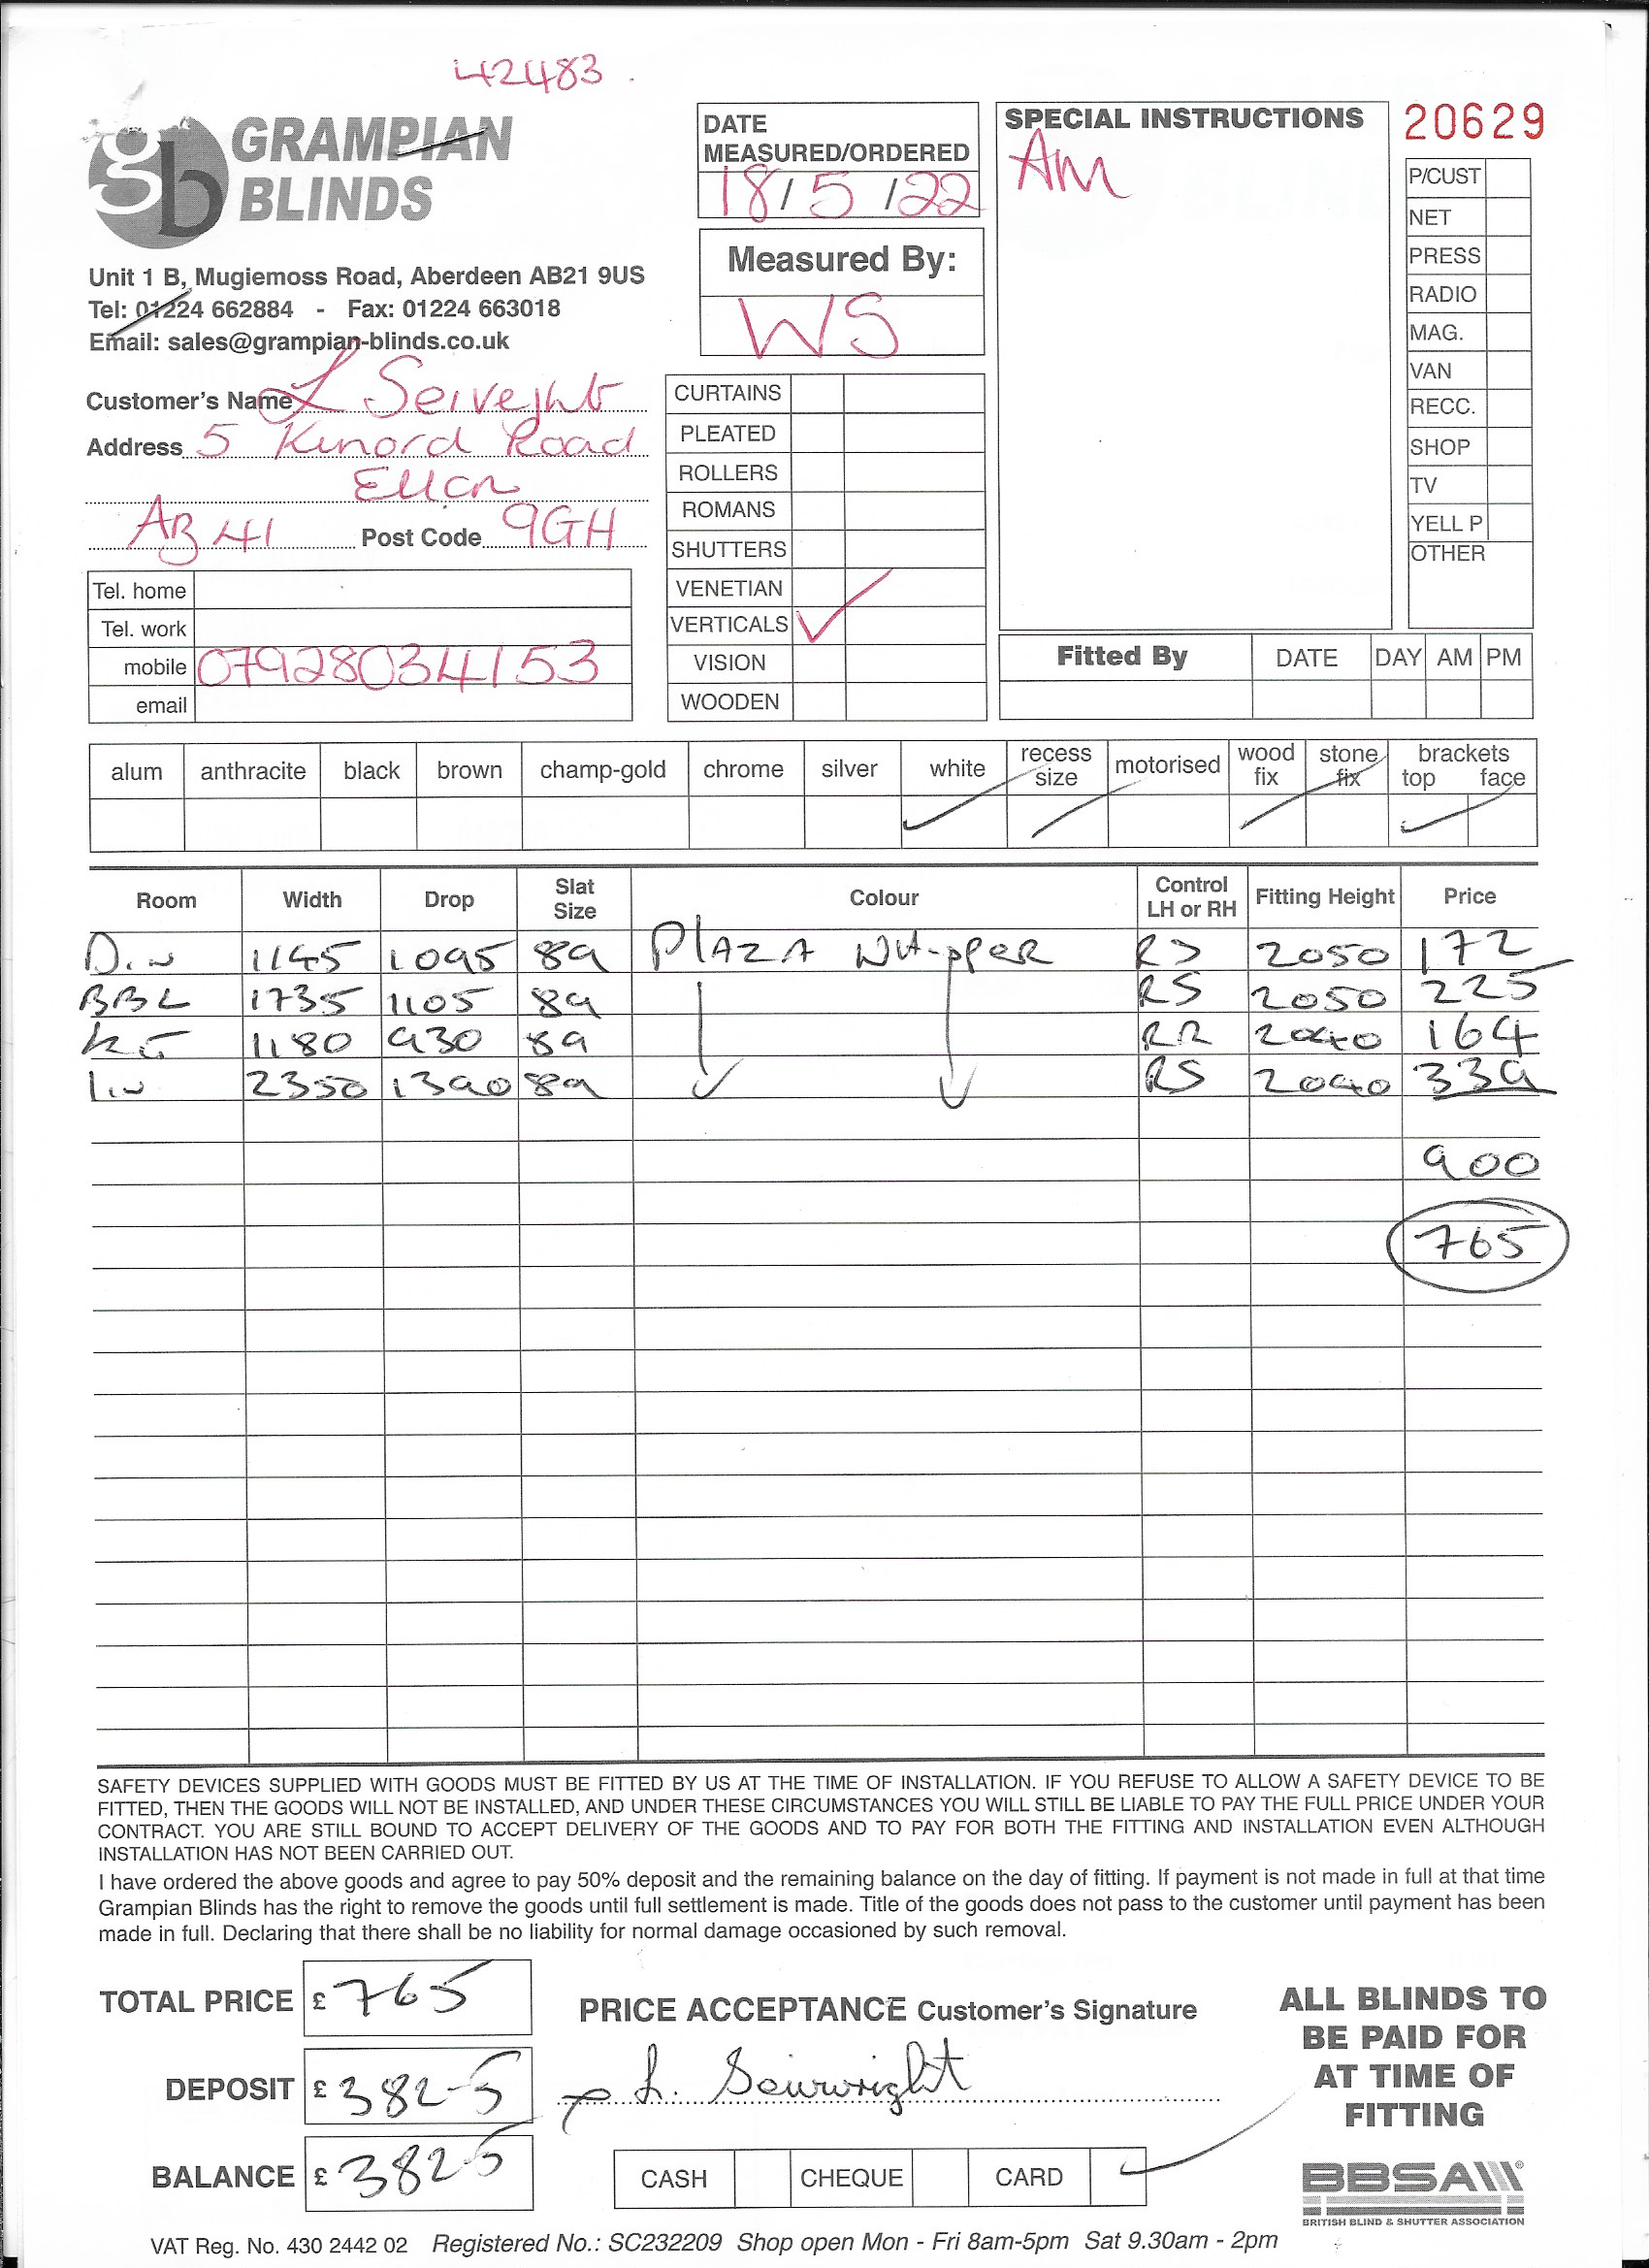 42483
GRAMPIAN
BLINDS
Unit 1 B, Mugiemoss Road, Aberdeen AB21 9US
Tel: 01224 662884 - Fax: 01224 663018
Email: sales@grampian-blinds.co.uk
Customer's Name L
Address 5 Kinord Road
Ellon
AB41 Post Code 9GH
Tel. home
Tel. work
mobile 07928034153
email
DATE
MEASURED/ORDERED
18/5/22
Measured By:
WS
CURTAINS
PLEATED
ROLLERS
ROMANS
SHUTTERS
VENETIAN
VERTICALS ✓
VISION
WOODEN
SPECIAL INSTRUCTIONS
AM
20629
P/CUST
NET
PRESS
RADIO
MAG.
VAN
RECC.
SHOP
TV
YELL P
OTHER
Fitted By DATE DAY AM PM
alum anthracite black brown champ-gold chrome silver white recess size motorised wood fix stone fix brackets top face
Room Width Drop Slat Size Colour Control LH or RH Fitting Height Price
1145 1095 89 PLAZA 2050 172
BBL 1735 1105 89 RS 2050 225
1180 930 89 RR 2040 164
2350 1390 89 RS 2040 339
900
765
SAFETY DEVICES SUPPLIED WITH GOODS MUST BE FITTED BY US AT THE TIME OF INSTALLATION. IF YOU REFUSE TO ALLOW A SAFETY DEVICE TO BE
FITTED, THEN THE GOODS WILL NOT BE INSTALLED, AND UNDER THESE CIRCUMSTANCES YOU WILL STILL BE LIABLE TO PAY THE FULL PRICE UNDER YOUR
CONTRACT. YOU ARE STILL BOUND TO ACCEPT DELIVERY OF THE GOODS AND TO PAY FOR BOTH THE FITTING AND INSTALLATION EVEN ALTHOUGH
INSTALLATION HAS NOT BEEN CARRIED OUT.
I have ordered the above goods and agree to pay 50% deposit and the remaining balance on the day of fitting. If payment is not made in full at that time
Grampian Blinds has the right to remove the goods until full settlement is made. Title of the goods does not pass to the customer until payment has been
made in full. Declaring that there shall be no liability for normal damage occasioned by such removal.
TOTAL PRICE £ 765
DEPOSIT £ 382-5
BALANCE £ 382-5
PRICE ACCEPTANCE Customer's Signature
CASH CHEQUE CARD ✓
ALL BLINDS TO
BE PAID FOR
AT TIME OF
FITTING
BBSA
BRITISH BLIND & SHUTTER ASSOCIATION
VAT Reg. No. 430 2442 02 Registered No.: SC232209 Shop open Mon - Fri 8am-5pm Sat 9.30am - 2pm